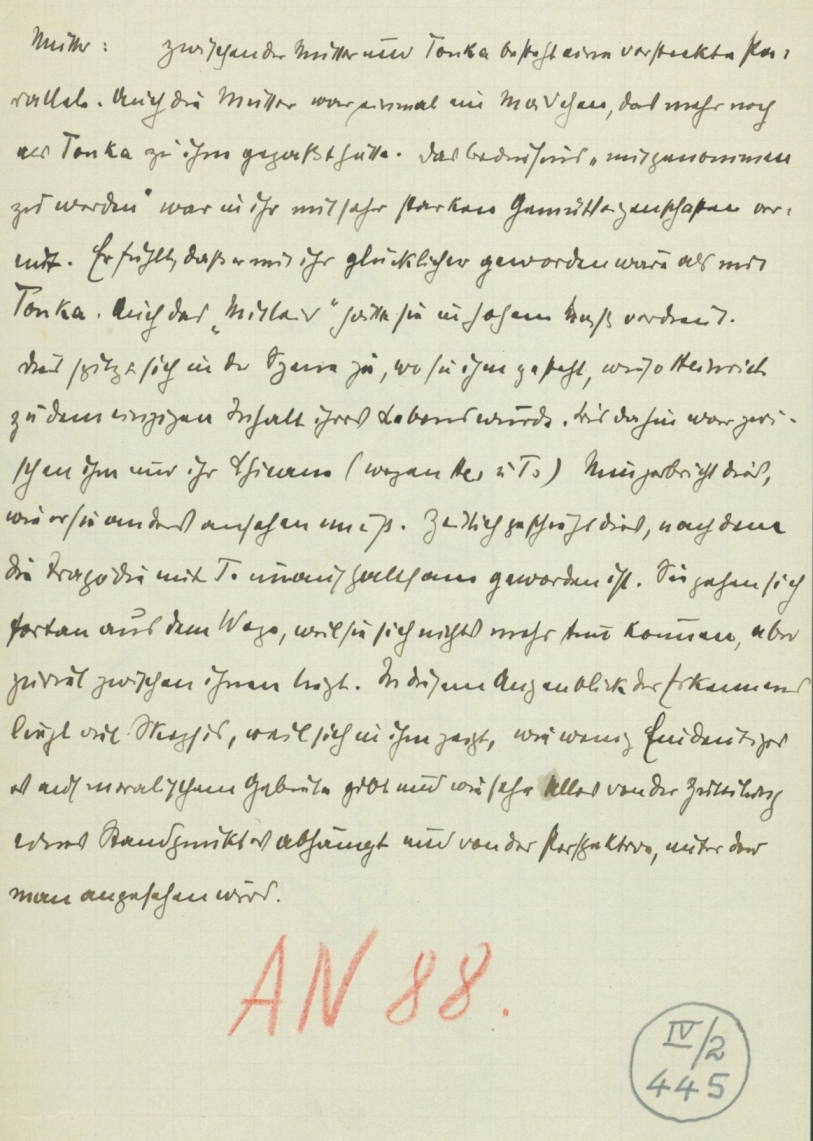 Mutter: Zwischen der Mutter und Tonka besteht eine versteckte Pa-
rallele. Auch die Mutter war einmal ein Mädchen, das mehr noch
als Tonka zu ihm gepaßt hätte. Das Bedürfnis „mitgenommen
zu werden" war in ihr mit sehr starken Gemütseigenschaften ver-
eint. Er fühlt, daß er mit ihr glücklicher geworden wäre als mit
Tonka. Auch das „Mitleid" hätte sie in hohem Maß verdient.
Dies spitzt sich in der Szene zu, wo sie ihm gesteht, wieso Heinrich
zu dem einzigen Inhalt ihres Lebens wurde. Bis dahin war zwi-
schen ihm und ihr (wegen u T.) Nun zerbricht dies,
wie er sie anders ansehen muß. Zeitlich geschieht dies, nachdem
die Tragödie mit T. unaufhaltsam geworden ist. Sie gehen sich
fortan aus dem Wege, weil sie sich nichts mehr tun können, aber
zuviel zwischen ihnen liegt. In diesem Augenblick des Erkennens
liegt viel Skepsis, weil sich in ihm zeigt, wie wenig Eindeutiges
es auf moralischem Gebiete gibt und wie sehr Alles von der
eines Standpunktes abhängt und von der Perspektive, unter der
man angesehen wird.
AN 88.
IV/2
445